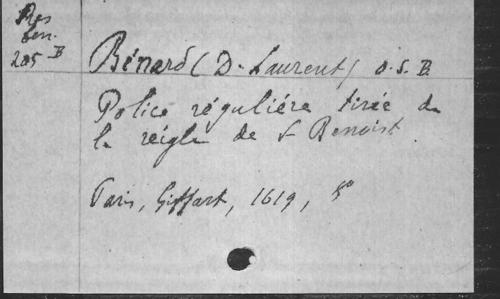 Res
ben.
205 B
Bénard (D. Laurent) O. S. B.
Police régulière tirée de
la reigle de S Benoist
Paris, Giffart, 1619, 8°